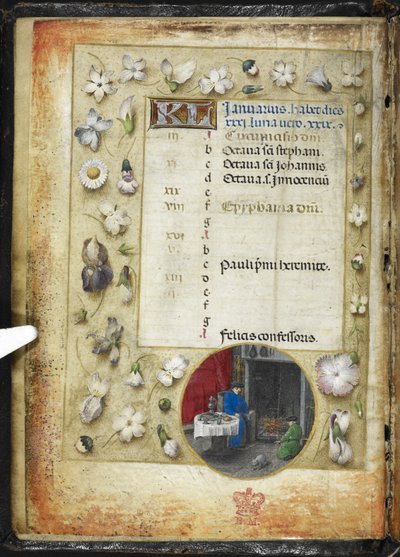 KL Januarius habet dies
xxxi luna vero xxix
iii A Circumcisio dni
b Octava sci stephani
xi c Octava sci Johannis
d Octava s. Innocenciu
xix e
viii f Epyphania dni
g
xvi A
v b
c Pauli pmi heremite
xiii d
ii e
f
g
A Felicis confessoris